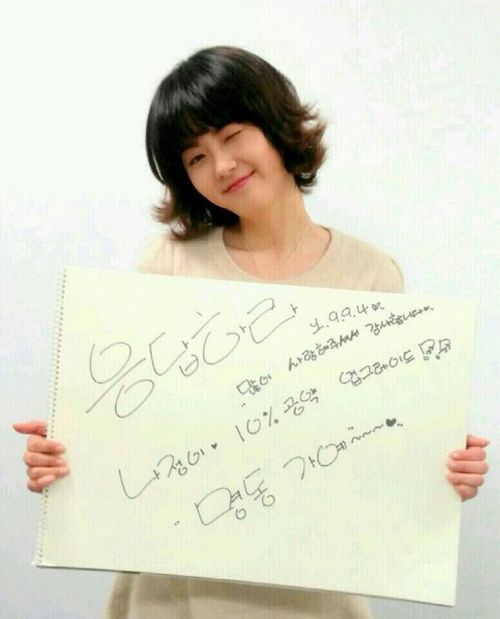 응답하라 1.9.9.4
많이 사랑해주셔서 감사합니다
나정이♥ 10% 공약 업그레이드
명동 가예~~~♥